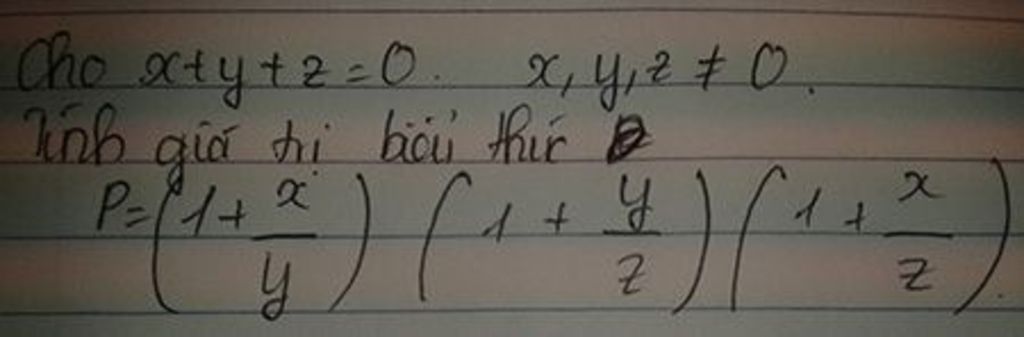 Cho x+y+z=0. x,y,z ≠ 0.
Tính giá trị biểu thức
P=(1+x/y) (1+y/z) (1+x/z).